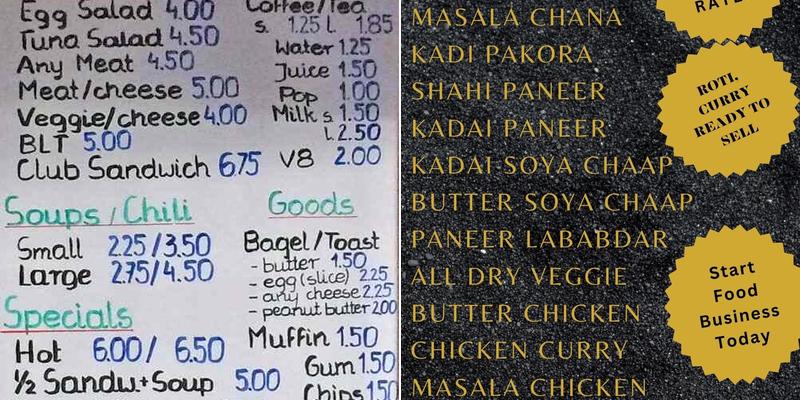 Egg Salad 4.00
Tuna Salad 4.50
Any Meat 4.50
Meat/cheese 5.00
Veggie/cheese 4.00
BLT 5.00
Club Sandwich 6.75
Soups/Chili
Small 2.25/3.50
Large 2.75/4.50
Specials
Hot 6.00/ 6.50
½ Sandw.+Soup 5.00
Coffee/Tea
s. 1.25 L 1.85
Water 1.25
Juice 1.50
Pop 1.00
Milk s 1.50
L 2.50
V8 2.00
Goods
Bagel/Toast
- butter 1.50
- egg (slice) 2.25
- any cheese 2.25
- peanut butter 2.00
Muffin 1.50
Gum 1.50
Chips 1.50
MASALA CHANA
KADI PAKORA
SHAHI PANEER
KADAI PANEER
KADAI SOYA CHAAP
BUTTER SOYA CHAAP
PANEER LABABDAR
ALL DRY VEGGIE
BUTTER CHICKEN
CHICKEN CURRY
MASALA CHICKEN
ROTI,
CURRY
READY TO
SELL
Start
Food
Business
Today